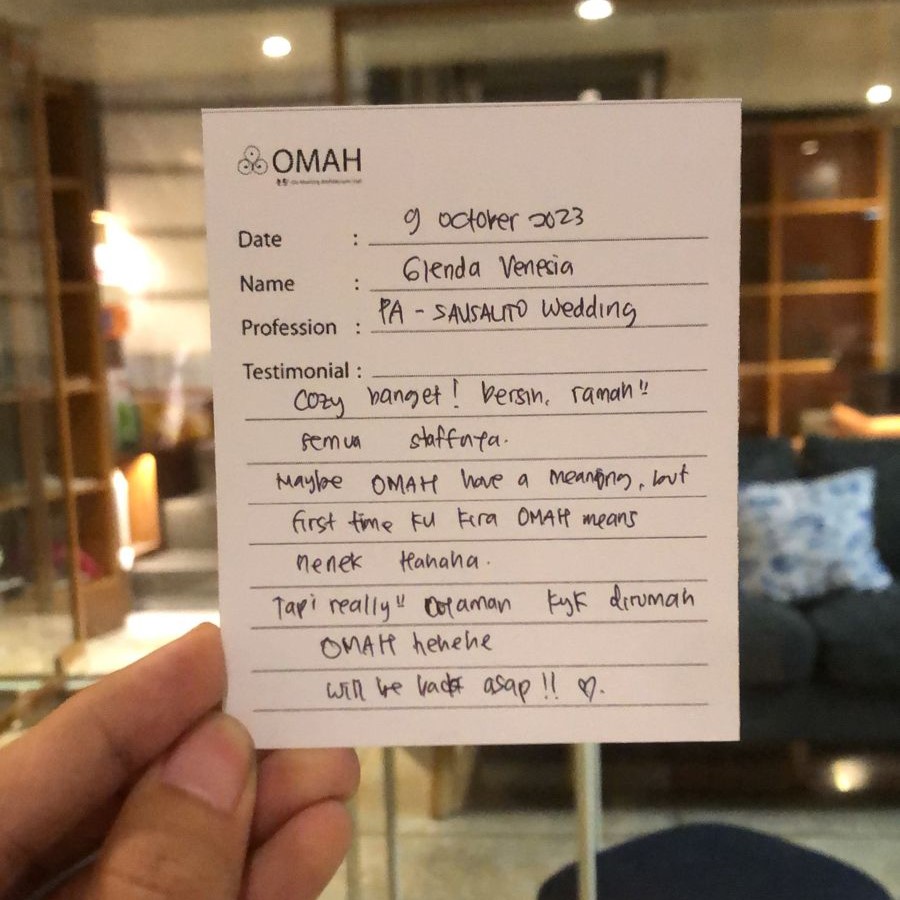 OMAH
Date : 9 October 2023
Name : Glenda Venesia
Profession : PA - SAUSALITO Wedding
Testimonial :
Cozy banget! bersih, ramah!!
semua staffnya.
Maybe OMAH have a meaning, but
first time ku kira OMAH means
nenek Hahaha.
Tapi really!! nyaman kyk dirumah
OMAH hehehe
will be back asap!! ♡.